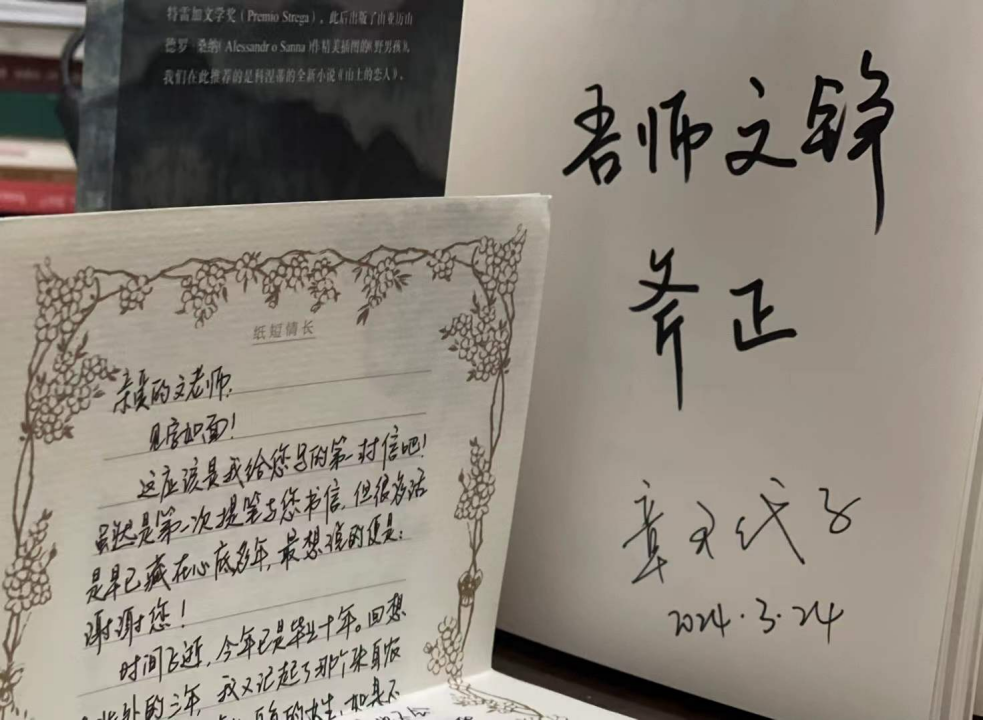 特雷加文学奖（Premio Strega）。此后出版了由亚历山
德罗·桑纳（Alessandro Sanna）作精美插图的《野男孩》。
我们在此推荐的是科涅蒂的全新小说《山上的恋人》。
吾师文锋
斧正
章
2024.3.24
纸短情长
亲爱的文老师，
见字如面！
这应该是我给您写的第一封信吧！
虽然是第一次提笔与您书信，但很多话
是早已藏在心底多年，最想说的便是：
谢谢您！
时间飞逝，今年已是毕业十年。回想
的三年，我又记起了那个来自农
的女生，如果不